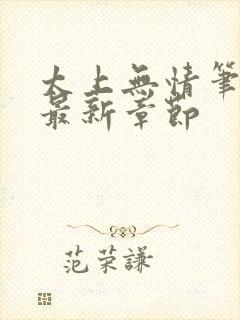 大上無情筆
最新章節
范荣謙